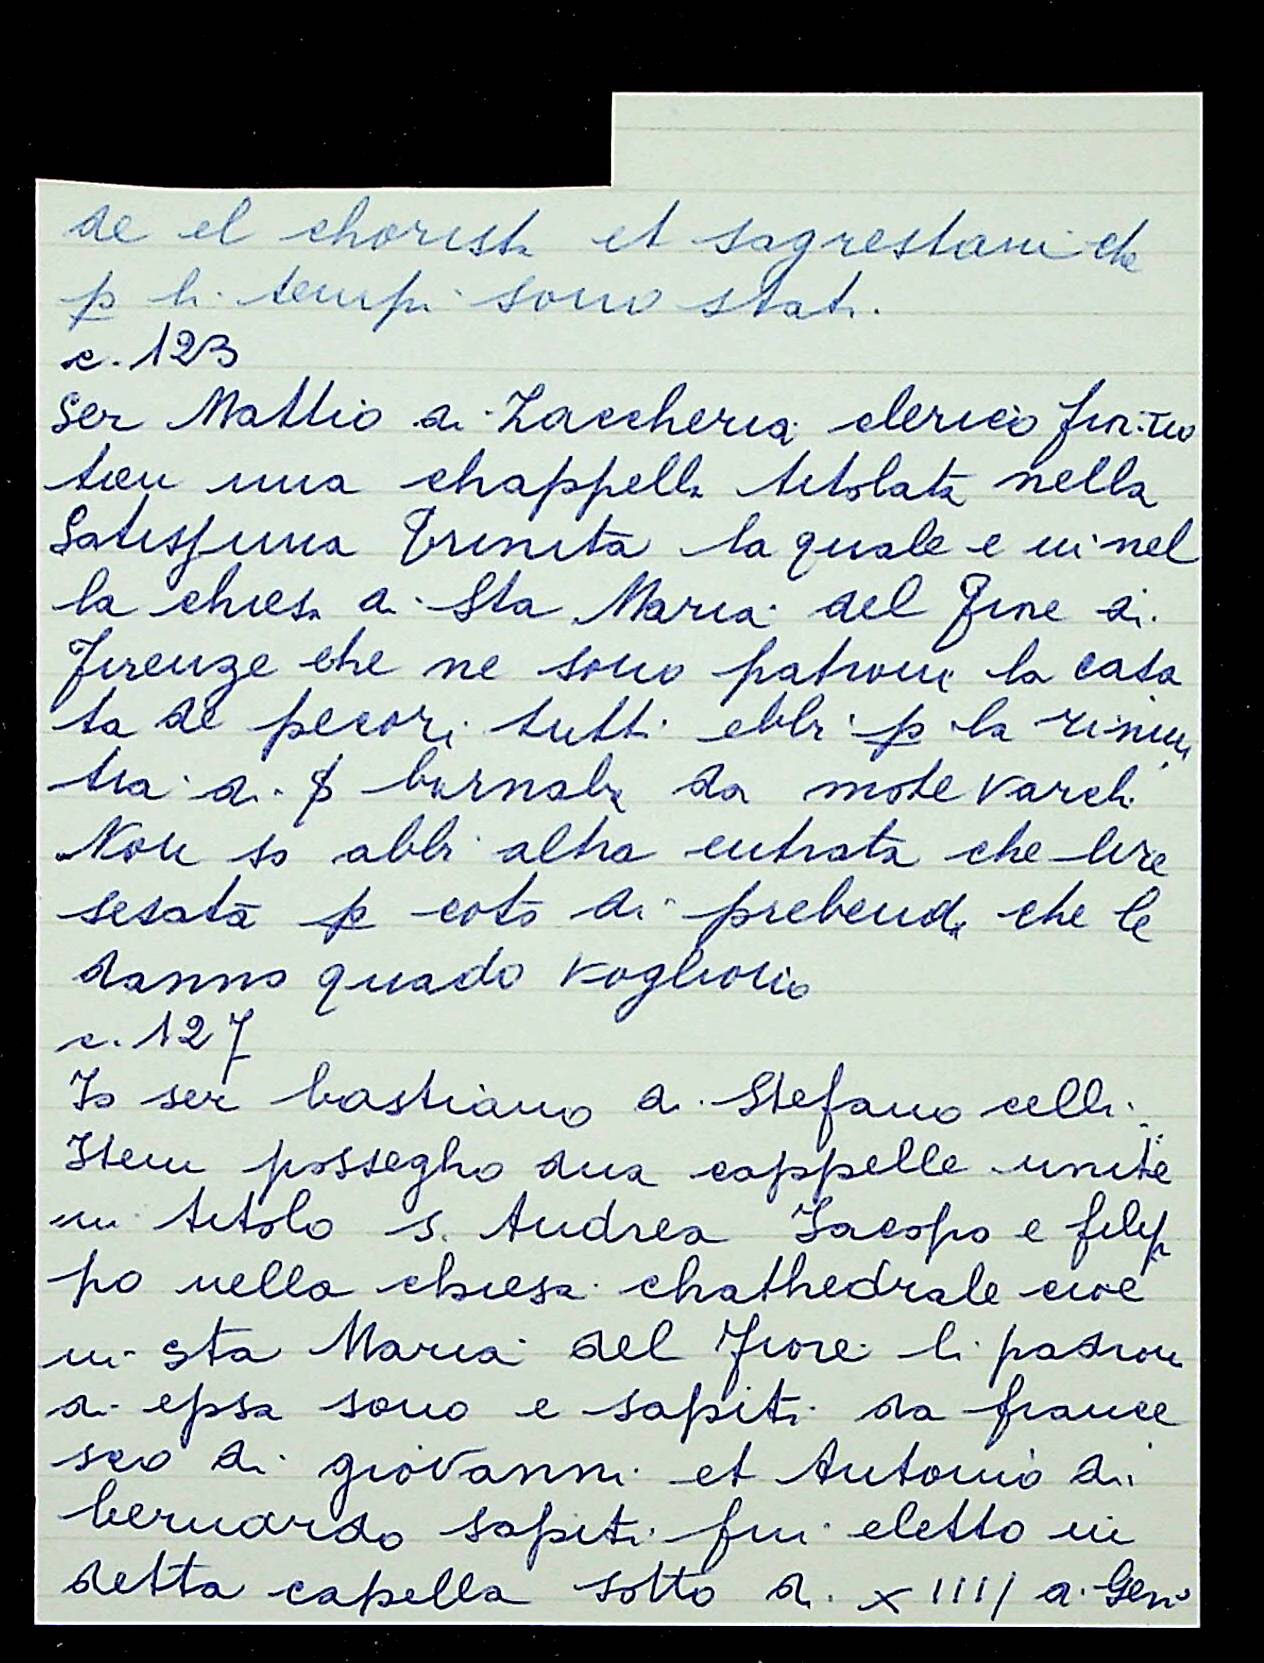 de el chorista et sagrestani che
p li tempi sono stati.
c. 123
Ser Mattio di Zaccheria clerico fior.no
tien una chappella titolata nella
Satissima Trinità la quale e in nel
la chiesa di Sta Maria del Fiore di
Firenze che ne sono patroni la casa
ta de pecori tutti ebbi p la rinun
tia di barnaba da mote varchi
Non so abbi altra entrata che lire
sesata p coto di prebenda che le
danno quado vogliono
c. 127
Io ser bastiano di Stefano celli
Item possegho dua cappelle unite
in titolo s. Andrea Jacopo e filip
po nella chiesa chathedrale cioè
in sta Maria del Fiore li padroni
di epsa sono e sapiti da france
sco di giovanni et Antonio di
bernardo sapiti fui eletto in
detta capella sotto di XIIII di Gen.o